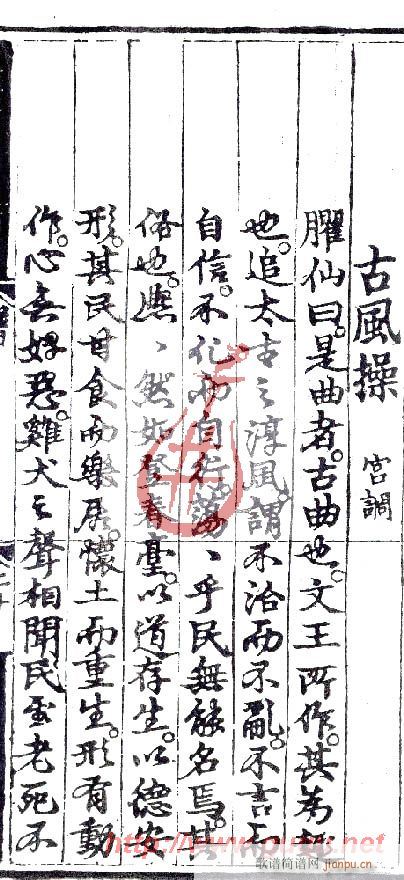 古風操 宮調
臞仙曰。是曲者。古曲也。文王所作。其為趣
也。追太古之淳風。謂不治而不亂。不言而
自信。不化而自行。蕩、乎民無能名焉。其
俗也。熈、然如登春臺。以道存生。以德安
形。其民甘食而樂居。懷土而重生。形有動
作。心無好惡。雞犬之聲相聞。民至老死不
歌谱简谱网 jianpu.cn